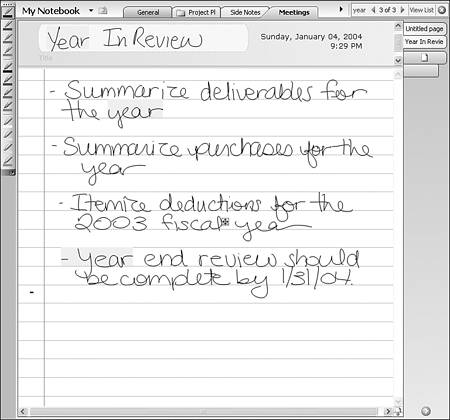 My Notebook
General
Project Pl
Side Notes
Meetings
year
3 of 3
View List
Year In Review
Title
Sunday, January 04, 2004
9:29 PM
Untitled page
Year In Revie
- Summarize deliverables for
the year
- Summarize purchases for the
year
- Itemize deductions for the
2003 fiscal year
- Year end review should
be complete by 1/31/04.